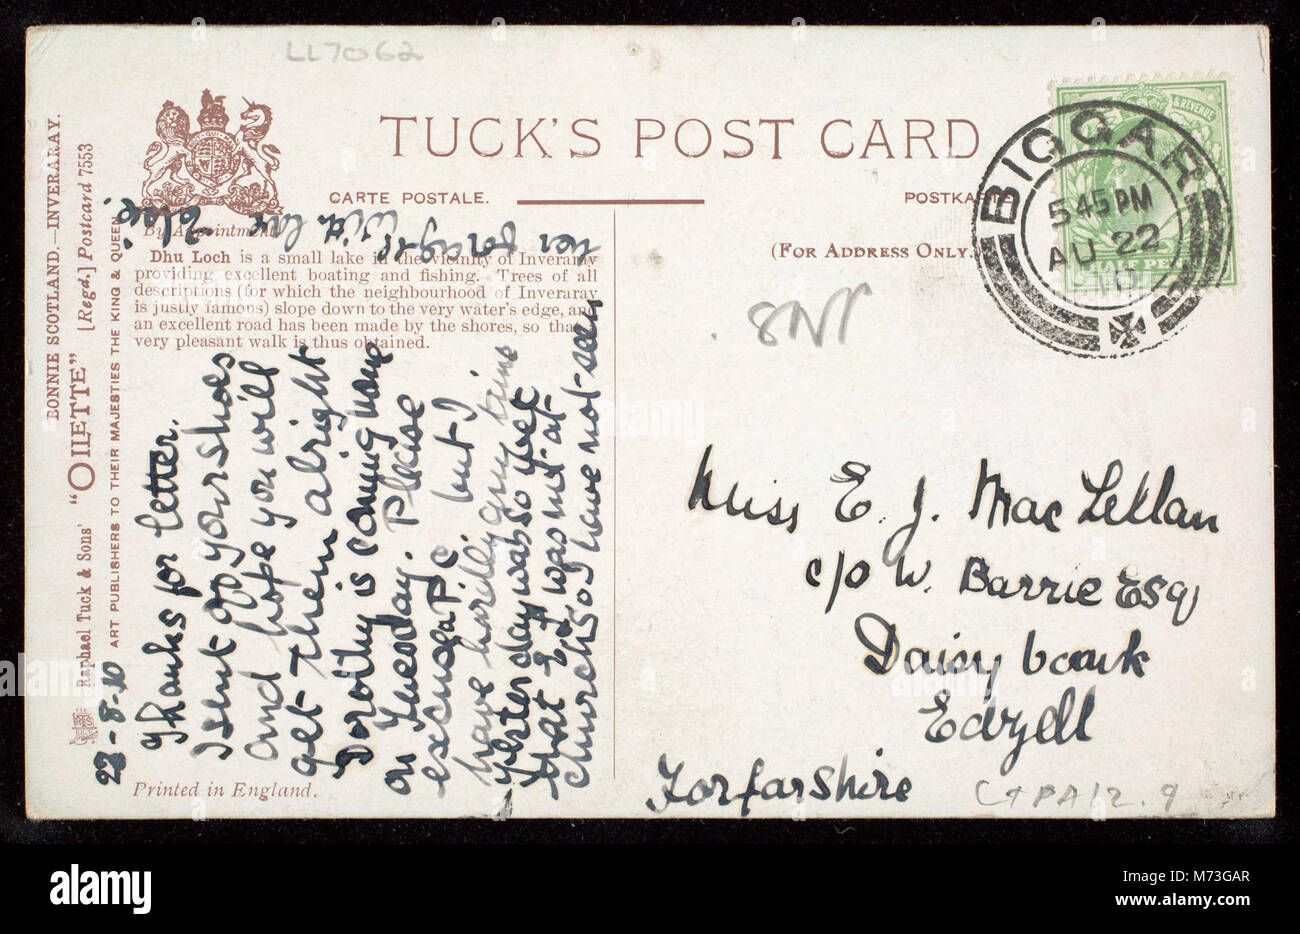 LL7062
TUCK'S POST CARD
CARTE POSTALE.
POSTKAR
(FOR ADDRESS ONLY.)
BONNIE SCOTLAND.—INVERARAY.
"OILETTE" [Regd.] Postcard 7553
Raphael Tuck & Sons'
ART PUBLISHERS TO THEIR MAJESTIES THE KING & QUEEN.
By Appointment.
Dhu Loch is a small lake in the vicinity of Inveraray
providing excellent boating and fishing. Trees of all
descriptions (for which the neighbourhood of Inveraray
is justly famous) slope down to the very water's edge, and
an excellent road has been made by the shores, so that
very pleasant walk is thus obtained.
22-8-10
Thanks for letter.
I sent off your shoes
and hope you will
get them alright
Dorothy is coming home
on Tuesday. Please
excuse a P.C but I
have hardly any time
Yesterday was so wet
that I was not at
church so I have not seen
her
With love
Printed in England.
BIGGAR
5 45 PM
AU 22
10
& REVENUE
HALF PE
Miss E. J. MacLellan
c/o W. Barrie Esq
Daisy bank
Edzell
Forfarshire
C+PA12.9
alamy
Image ID: M73GAR
www.alamy.com